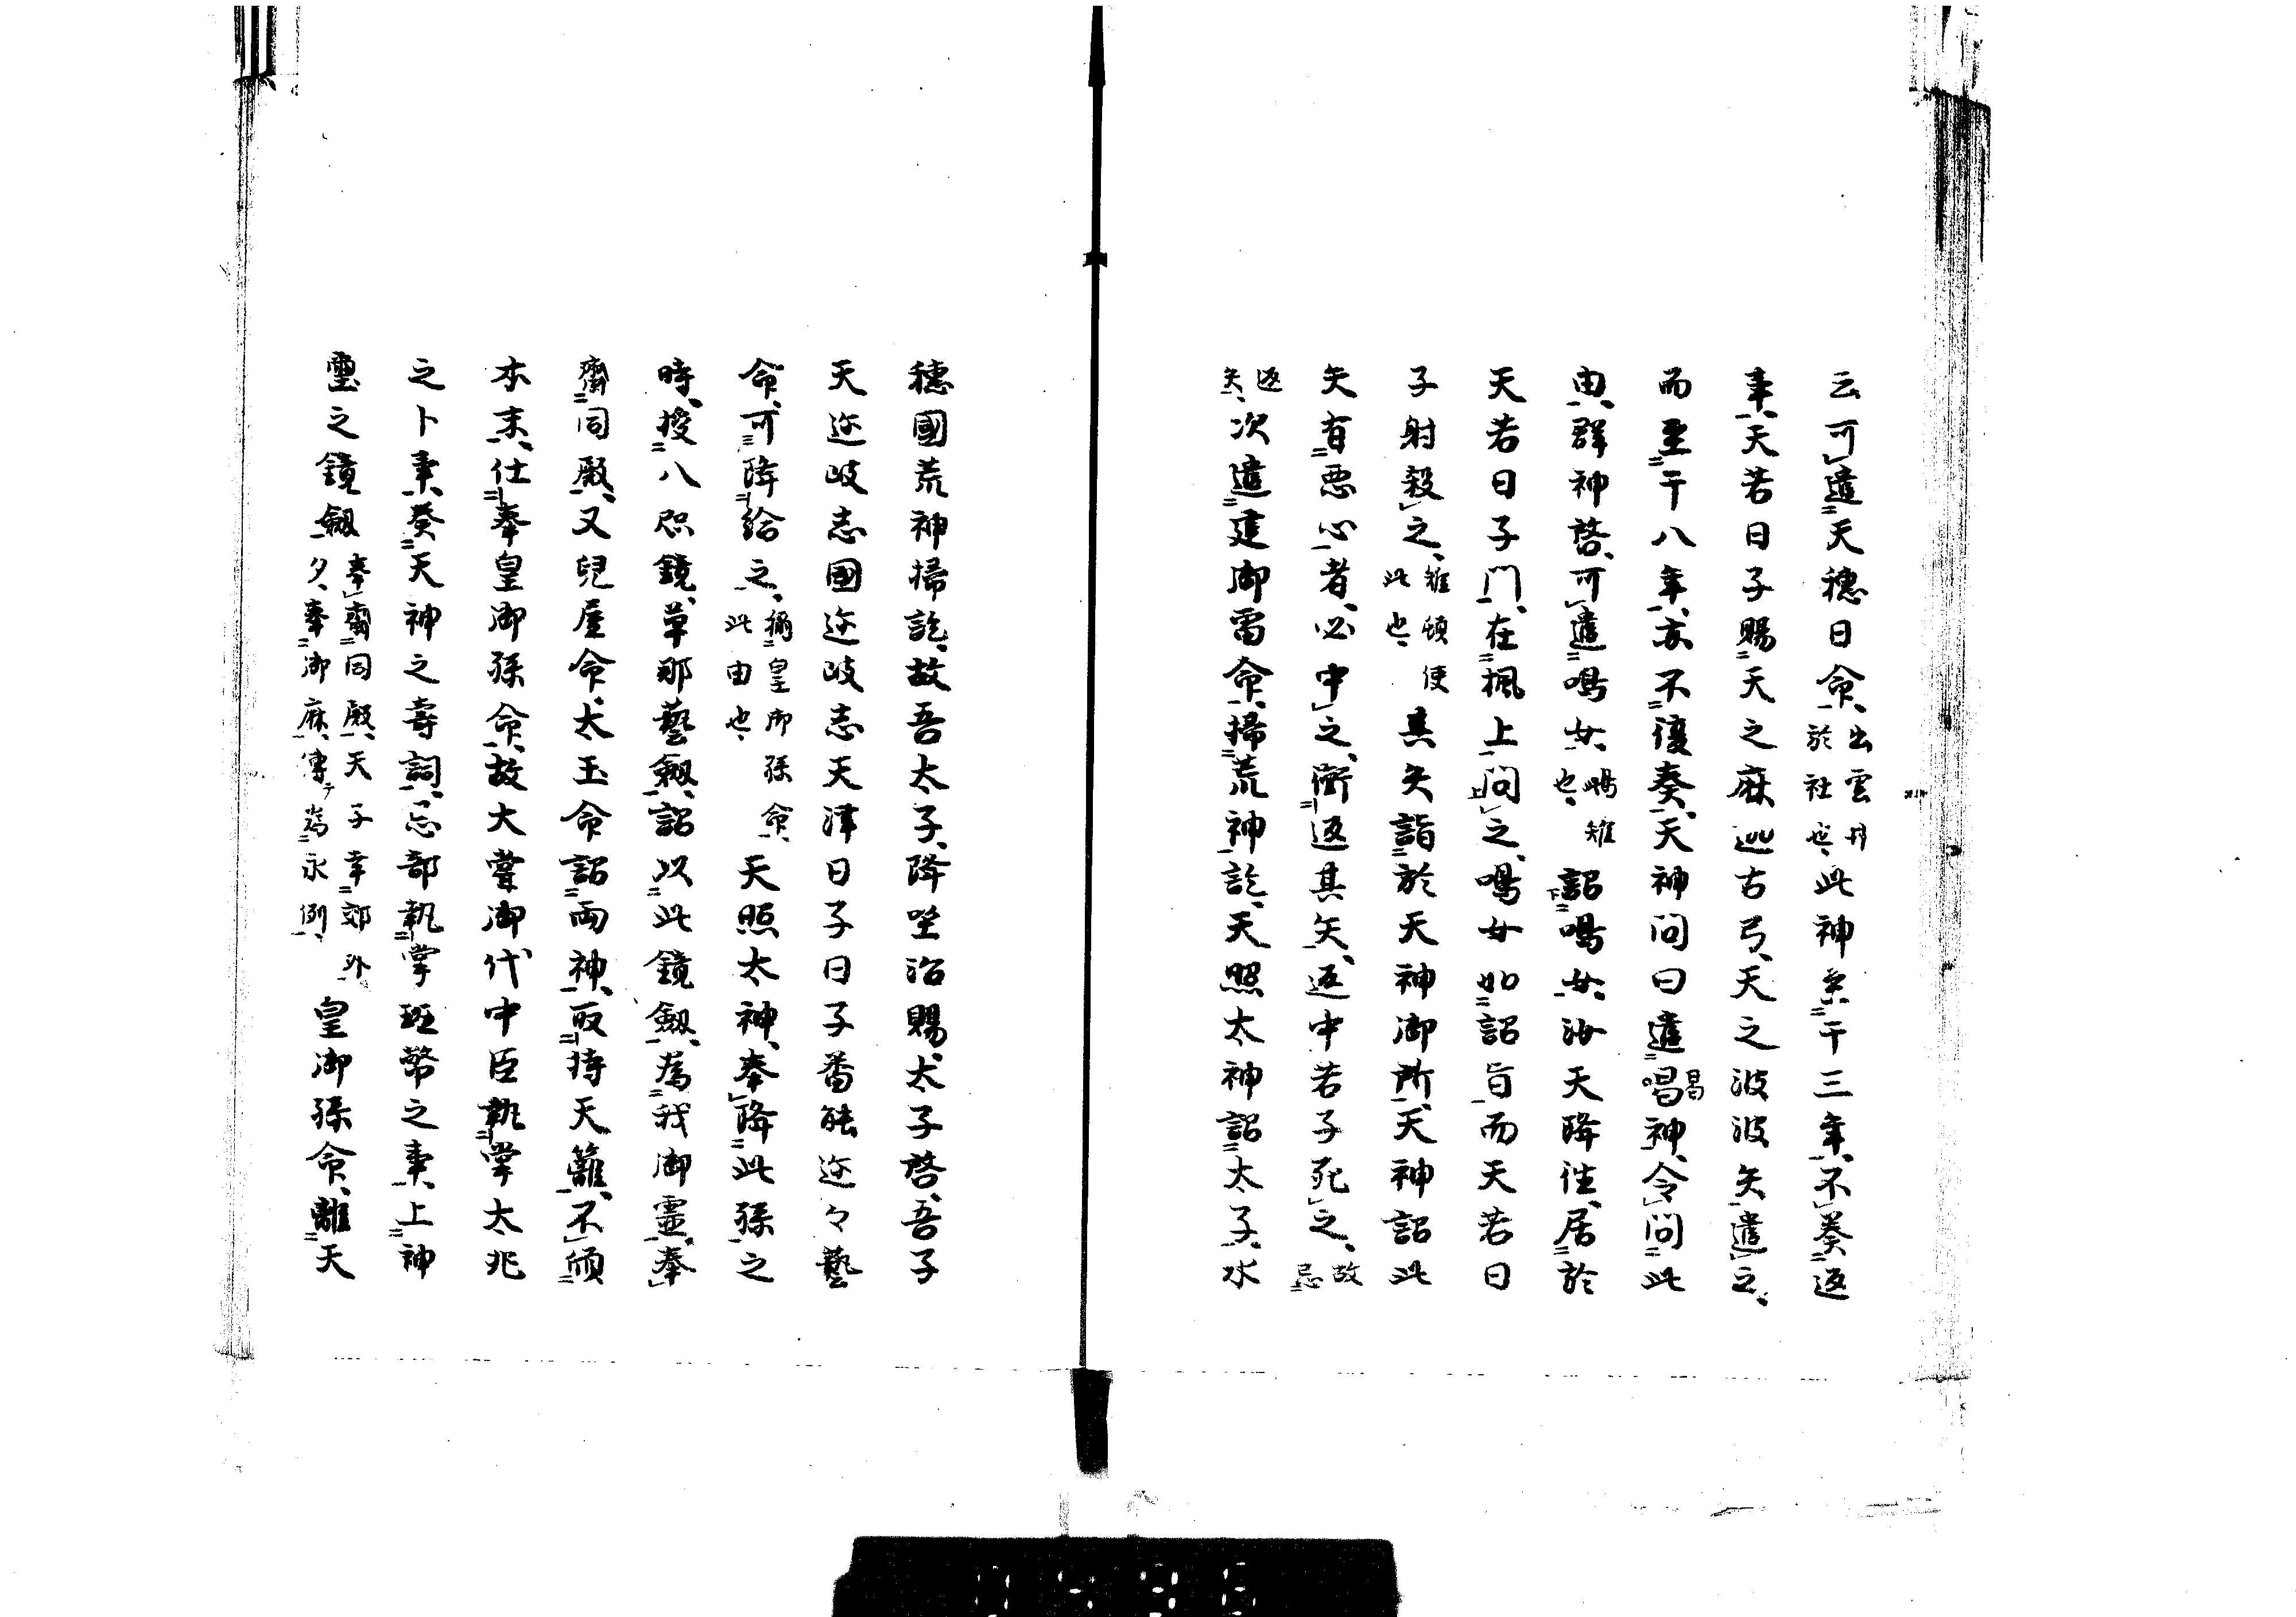 云可遣天穂日命、出雲井於社也、此神参于三年、不奏返
事、天若日子賜天之麻迦古弓、天之波波矢遣之、
而至于八年、亦不復奏、天神問曰遣唱神、令問此
由、群神啓、可遣鳴女、鳴雉也、詔鳴女、汝天降往、居於
天若日子門、在楓上問之、鳴女如詔旨而天若日
子射殺之、雉頓使此也、其矢詣於天神御所、天神詔此
矢有悪心者、必中之、衝返其矢、返中若子死之、故忌
返矢、次遣建御雷命、掃荒神訖、天照太神詔太子、水
穂國荒神掃訖、故吾太子、降坐治賜、太子啓、吾子
天迩岐志國迩岐志天津日子日子番能迩々藝
命、可降給之、稱皇御孫命、此由也、天照太神、奉降此孫之
時、授八咫鏡、草那藝劔、詔以此鏡劔、為我御靈、奉
齋同殿、又兒屋命、太玉命詔両神、取持天籬、不傾
本末、仕奉皇御孫命、故大嘗御代中臣執掌太兆
之卜事、奏天神之壽詞、忌部執掌班幣之事、上神
璽之鏡劔、奉齋同殿、天子幸郊外夕、奉御麻、傳テ為永例、皇御孫命、離天